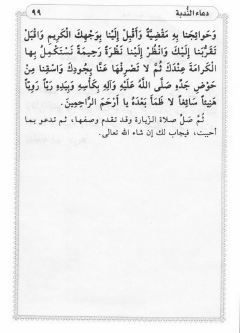 دعاء الندبة
٩٩
وَحَوائِجَنا بِهِ مَقْضِيَّةً وَأَقْبِلْ إِلَيْنا بِوَجْهِكَ الْكَرِيمِ وَاقْبَلْ
تَقَرُّبَنا إِلَيْكَ وَانْظُرْ إِلَيْنا نَظْرَةً رَحِيمَةً نَسْتَكْمِلُ بِها
الْكَرامَةَ عِنْدَكَ ثُمَّ لا تَصْرِفْها عَنَّا بِجُودِكَ وَاسْقِنا مِنْ
حَوْضِ جَدِّهِ صَلَّى اللَّهُ عَلَيْهِ وَآلِهِ بِكَأْسِهِ وَبِيَدِهِ رَيّاً رَوِيّاً
هَنِيئاً سائِغاً لا ظَمَأَ بَعْدَهُ يا أَرْحَمَ الرَّاحِمِينَ.
ثُمَّ صَلِّ صلاة الزيارة وقد تقدم وصفها، ثم تدعو بما
أحببت، فيجاب لك إن شاء الله تعالى.